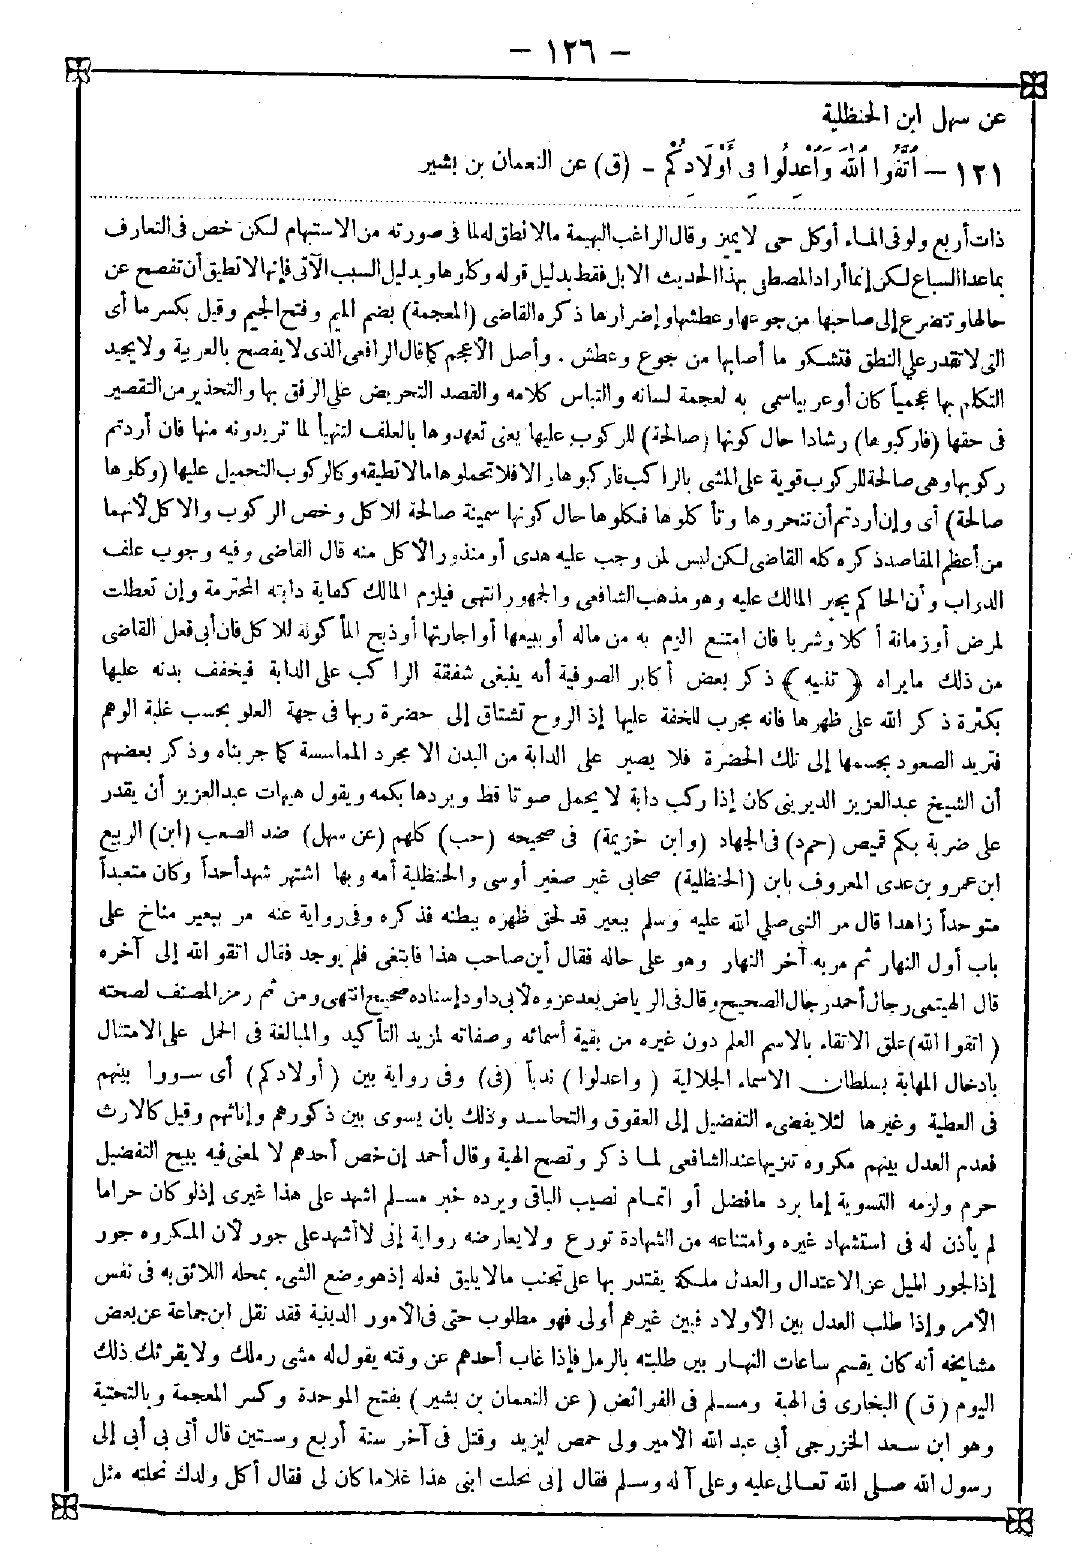 – ١٢٦ –
عن سهل ابن الحنظلية
١٢١ – اتَّقُوا اللهَ وَاعْدِلُوا فِى أَوْلَادِكُمْ – (ق) عن النعمان بن بشير
ذات أربع ولو فى الماء أو كل حى لا يميز وقال الراغب البهيمة ما لا نطق له لما فى صورته من الاستبهام لكن خص فى التعارف
بما عدا السباع لكن إنما أراد المصطفى بهذا الحديث الابل فقط بدليل قوله وكلوها وبدليل السبب الآتى فإنها لا تطيق أن تفصح عن
حالها وتتضرع إلى صاحبها من جوعها وعطشها وإضرارها ذكره القاضى (المعجمة) بضم الميم وفتح الجيم وقيل بكسرها أى
التى لا تقدر على النطق فتشكو ما أصابها من جوع وعطش . وأصل الأعجم كما قال الرافعى الذى لا يفصح بالعربية ولا يجيد
التكلم بها عجمياً كان أو عربيا سمى به لعجمة لسانه والتباس كلامه والقصد التحريض على الرفق بها والتحذير من التقصير
فى حقها (فاركبوها) رشادا حال كونها (صالحة) للركوب عليها يعنى تعهدوها بالعلف لتتهيأ لما تريدونه منها فان أردتم
ركوبها وهى صالحة للركوب قوية على المشى بالراكب فاركبوها والا فلا تحملوها ما لا تطيقه وكالركوب التحميل عليها (وكلوها
صالحة) أى وإن أردتم أن تنحروها وتأكلوها فكلوها حال كونها سمينة صالحة للاكل وخص الركوب والاكل لأنهما
من أعظم المقاصد ذكره كله القاضى لكن ليس لمن وجب عليه هدى أو منذور الأكل منه قال القاضى وفيه وجوب علف
الدواب وأن الحاكم يجبر المالك عليه وهو مذهب الشافعى والجمهور انتهى فيلزم المالك كفاية دابته المحترمة وإن تعطلت
لمرض أو زمانة أكلا وشربا فان امتنع الزم به من ماله أو ببيعها أو اجارتها أو ذبح المأكولة للاكل فان أبى فعل القاضى
من ذلك مايراه ﴿ تنبيه ﴾ ذكر بعض أكابر الصوفية أنه ينبغى شفقة الراكب على الدابة فيخفف بدنه عليها
بكثرة ذكر الله على ظهرها فانه مجرب للخفة عليها إذ الروح تشتاق إلى حضرة ربها فى جهة العلو بحسب غلبة الوهم
فتريد الصعود بجسمها إلى تلك الحضرة فلا يصير على الدابة من البدن الا مجرد المماسسة كما جربناه وذكر بعضهم
أن الشيخ عبدالعزيز الديرينى كان إذا ركب دابة لا يحمل صوتا قط ويردها بكمه ويقول هيهات عبدالعزيز أن يقدر
على ضربة بكم قميص (حم د) فى الجهاد (وابن خزيمة) فى صحيحه (حب) كلهم (عن سهل) ضد الصعب (ابن) الربيع
ابن عمرو بن عدى المعروف بابن (الحنظلية) صحابى غير صغير أوسى والحنظلية أمه وبها اشتهر شهد أحداً وكان متعبداً
متوحداً زاهدا قال مر النبى صلى الله عليه وسلم ببعير قد لحق ظهره ببطنه فذكره وفى رواية عنه مر ببعير مناخ على
باب أول النهار ثم مر به آخر النهار وهو على حاله فقال أين صاحب هذا فابتغى فلم يوجد فقال اتقوا الله إلى آخره
قال الهيتمى رجال أحمد رجال الصحيح وقال فى الرياض بعد عزوه لأبى داود إسناده صحيح انتهى ومن ثم رمز المصنف لصحته
( اتقوا الله) علق الاتقاء بالاسم العلم دون غيره من بقية أسمائه وصفاته لمزيد التأكيد والمبالغة فى الحمل على الامتثال
بادخال المهابة بسلطان الاسماء الجلالية ( واعدلوا ) ندباً (فى) وفى رواية بين ( أولادكم ) أى سووا بينهم
فى العطية وغيرها لئلا يفضى التفضيل إلى العقوق والتحاسد وذلك بان يسوى بين ذكورهم وإناثهم وقيل كالارث
فعدم العدل بينهم مكروه تنزيها عند الشافعى لما ذكر وتصح الهبة وقال أحمد إن خص أحدهم لا لمعنى فيه يبيح التفضيل
حرم ولزمه التسوية إما برد مافضل أو اتمام نصيب الباقى ويرده خبر مسلم اشهد على هذا غيرى إذ لو كان حراما
لم يأذن له فى استشهاد غيره وامتناعه من الشهادة تورع ولا يعارضه رواية إنى لا أشهد على جور لأن المكروه جور
إذ الجور الميل عن الاعتدال والعدل ملكة يقتدر بها على تجنب مالا يليق فعله إذ هو وضع الشىء بمحله اللائق به فى نفس
الأمر وإذا طلب العدل بين الأولاد فبين غيرهم أولى فهو مطلوب حتى فى الأمور الدينية فقد نقل ابن جماعة عن بعض
مشايخه أنه كان يقسم ساعات النهار بين طلبته بالرمل فإذا غاب أحدهم عن وقته يقول له مشى رملك ولا يقرئك ذلك
اليوم ( ق ) البخارى فى الهبة ومسلم فى الفرائض ( عن النعمان بن بشير ) بفتح الموحدة وكسر المعجمة وبالتحتية
وهو ابن سعد الخزرجى أبى عبد الله الأمير ولى حمص ليزيد وقتل فى آخر سنة أربع وستين قال أتى بى أبى إلى
رسول الله صلى الله تعالى عليه وعلى آله وسلم فقال إنى نحلت ابنى هذا غلاما كان لى فقال أكل ولدك نحلته مثل